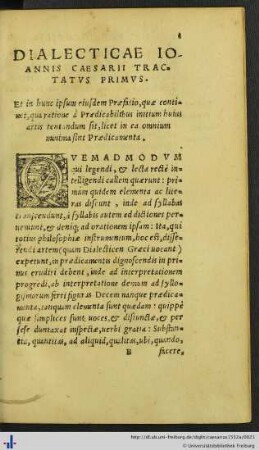 DIALECTICAE IO-
ANNIS CAESARII TRAC-
TATVS PRIMVS.
Et in hunc ipsum eiusdem Præfatio, quæ conti-
net, qua ratione à Prædicabilibus initium huius
artis tentandum sit, licet in ea omnium
minima sint Prædicamenta.
QVEMADMODVM
qui legendi, & lecta rectè in-
telligendi callem quærunt: pri-
mum quidem elementa ac lite-
ras discunt, inde ad syllabas
transcendunt, à syllabis autem ad dictiones per-
ueniunt, & deniq; ad orationem ipsam: Ita, qui
totius philosophiæ instrumentum, hoc est, disse-
rendi artem (quam Dialecticen Græci uocant)
expetunt, in prædicamentis dignoscendis in pri-
mis erudiri debent, inde ad interpretationem
progredi, ab interpretatione demum ad syllo-
gismorum ferri figuras. Decem nanque prædica-
menta, tanquam elementa sunt quædam: quippe
quæ simplices sunt uoces, & disiunctæ, & per
sese duntaxat inspectæ, uerbi gratia: Substan-
tia, quantitas, ad aliquid, qualitas, ubi, quando,
B facere,
http://dl.ub.uni-freiburg.de/diglit/caesarius1512a/0021
© Universitätsbibliothek Freiburg